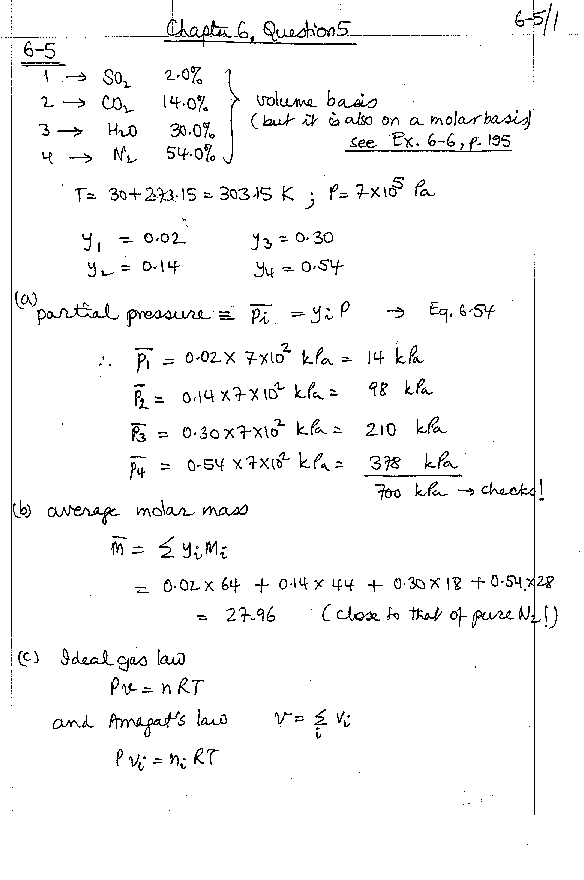 Chapter 6, Question 5
6-5/1
6-5
1 → SO2 2.0%
2 → CO2 14.0%
3 → H2O 30.0%
4 → N2 54.0%
volume basis
(but it is also on a molar basis)
see Ex. 6-6, p. 195
T = 30+273.15 = 303.15 K ; P = 7×10^5 Pa
y1 = 0.02 y3 = 0.30
y2 = 0.14 y4 = 0.54
(a) partial pressure ≡ p̄i = yi P → Eq. 6.54
∴ p̄1 = 0.02 × 7×10² kPa = 14 kPa
p̄2 = 0.14 × 7×10² kPa = 98 kPa
p̄3 = 0.30 × 7×10² kPa = 210 kPa
p̄4 = 0.54 × 7×10² kPa = 378 kPa
700 kPa → checks!
(b) average molar mass
M̄ = Σ yi Mi
= 0.02 × 64 + 0.14 × 44 + 0.30 × 18 + 0.54 × 28
= 27.96 (close to that of pure N2!)
(c) Ideal gas law
Pv = nRT
and Amagat's law v = Σi vi
P vi = ni RT